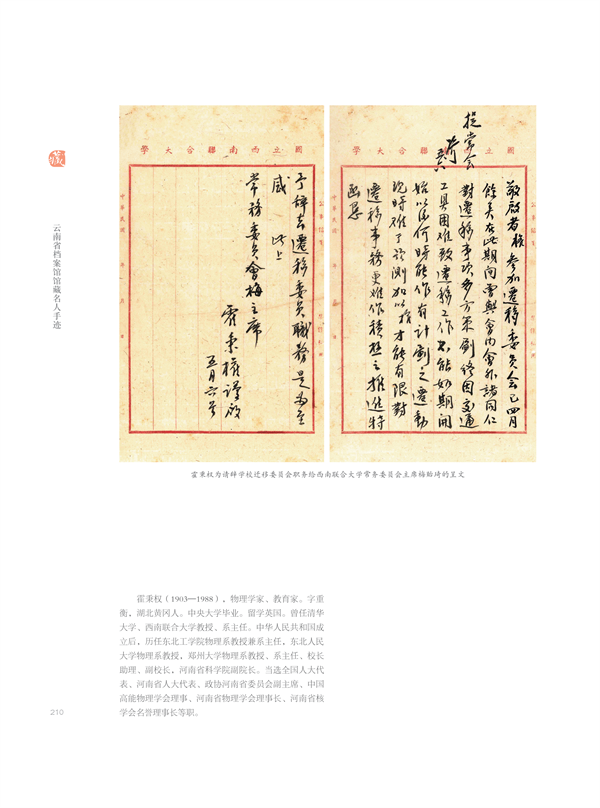 提常会
國立西南聯合大學
敬啟者權參加遷移委員会已四月
餘矣在此期間曾與會内會外諸同仁
對遷移事项多方策劃終因交通
工具困难致遷移工作不能如期開
始以後何時能作有計劃之遷動
现時难了预测加以權才能有限對
遷移事務更难作積極之推進特
函恳
國立西南聯合大學
予辞去遷移委員職務是为至
感 此上
常務委員會梅主席
霍秉權謹啟
五月六日
霍秉权为请辞学校迁移委员会职务给西南联合大学常务委员会主席梅贻琦的呈文
藏
云南省档案馆馆藏名人手迹
霍秉权（1903—1988），物理学家、教育家。字重
衡，湖北黄冈人。中央大学毕业。留学英国。曾任清华
大学、西南联合大学教授、系主任。中华人民共和国成
立后，历任东北工学院物理系教授兼系主任，东北人民
大学物理系教授，郑州大学物理系教授、系主任、校长
助理、副校长，河南省科学院副院长。当选全国人大代
表、河南省人大代表、政协河南省委员会副主席、中国
高能物理学会理事、河南省物理学会理事长、河南省核
学会名誉理事长等职。
210